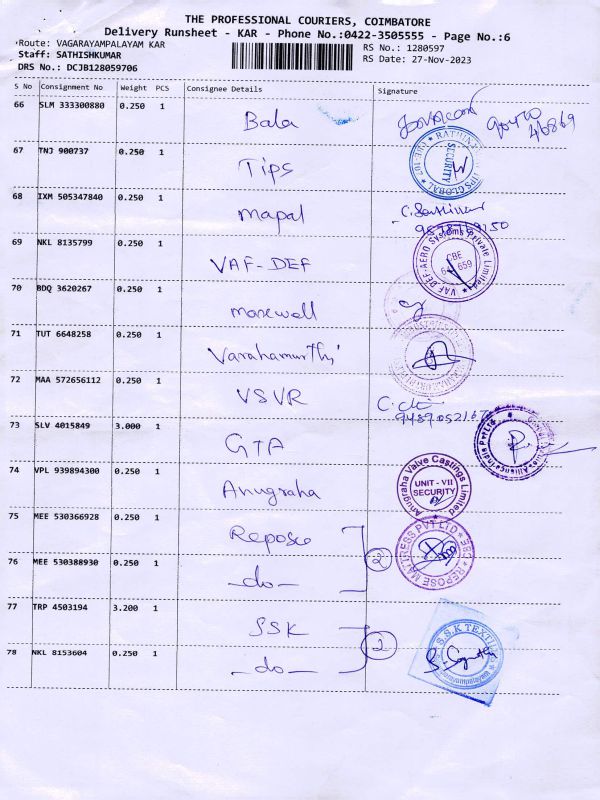 THE PROFESSIONAL COURIERS, COIMBATORE
Delivery Runsheet - KAR - Phone No.:0422-3505555 - Page No.:6
Route: VAGARAYAMPALAYAM KAR
RS No.: 1280597
Staff: SATHISHKUMAR
RS Date: 27-Nov-2023
DRS No.: DCJB128059706
S No Consignment No Weight PCS Consignee Details Signature
66 SLM 333300880 0.250 1 Bala
67 TNJ 900737 0.250 1 Tips SECURITY
68 IXM 505347840 0.250 1 mapal
69 NKL 8135799 0.250 1 VAF-DEF VAF-DEF-AERO Systems Private Limited CBE
70 BDQ 3620267 0.250 1 marewell
71 TUT 6648258 0.250 1 Varahamurthi
72 MAA 572656112 0.250 1 VSVR
73 SLV 4015849 3.000 1 GTA
74 VPL 939894300 0.250 1 Anugraha Anugraha Valve Castings Limited UNIT - VII SECURITY
75 MEE 530366928 0.250 1 Repose REPOSE MATTRESS PVT LTD CBE
76 MEE 530388930 0.250 1 -do- 2
77 TRP 4503194 3.200 1 SSK 2 S.S.K TEXTILE
78 NKL 8153604 0.250 1 -do-